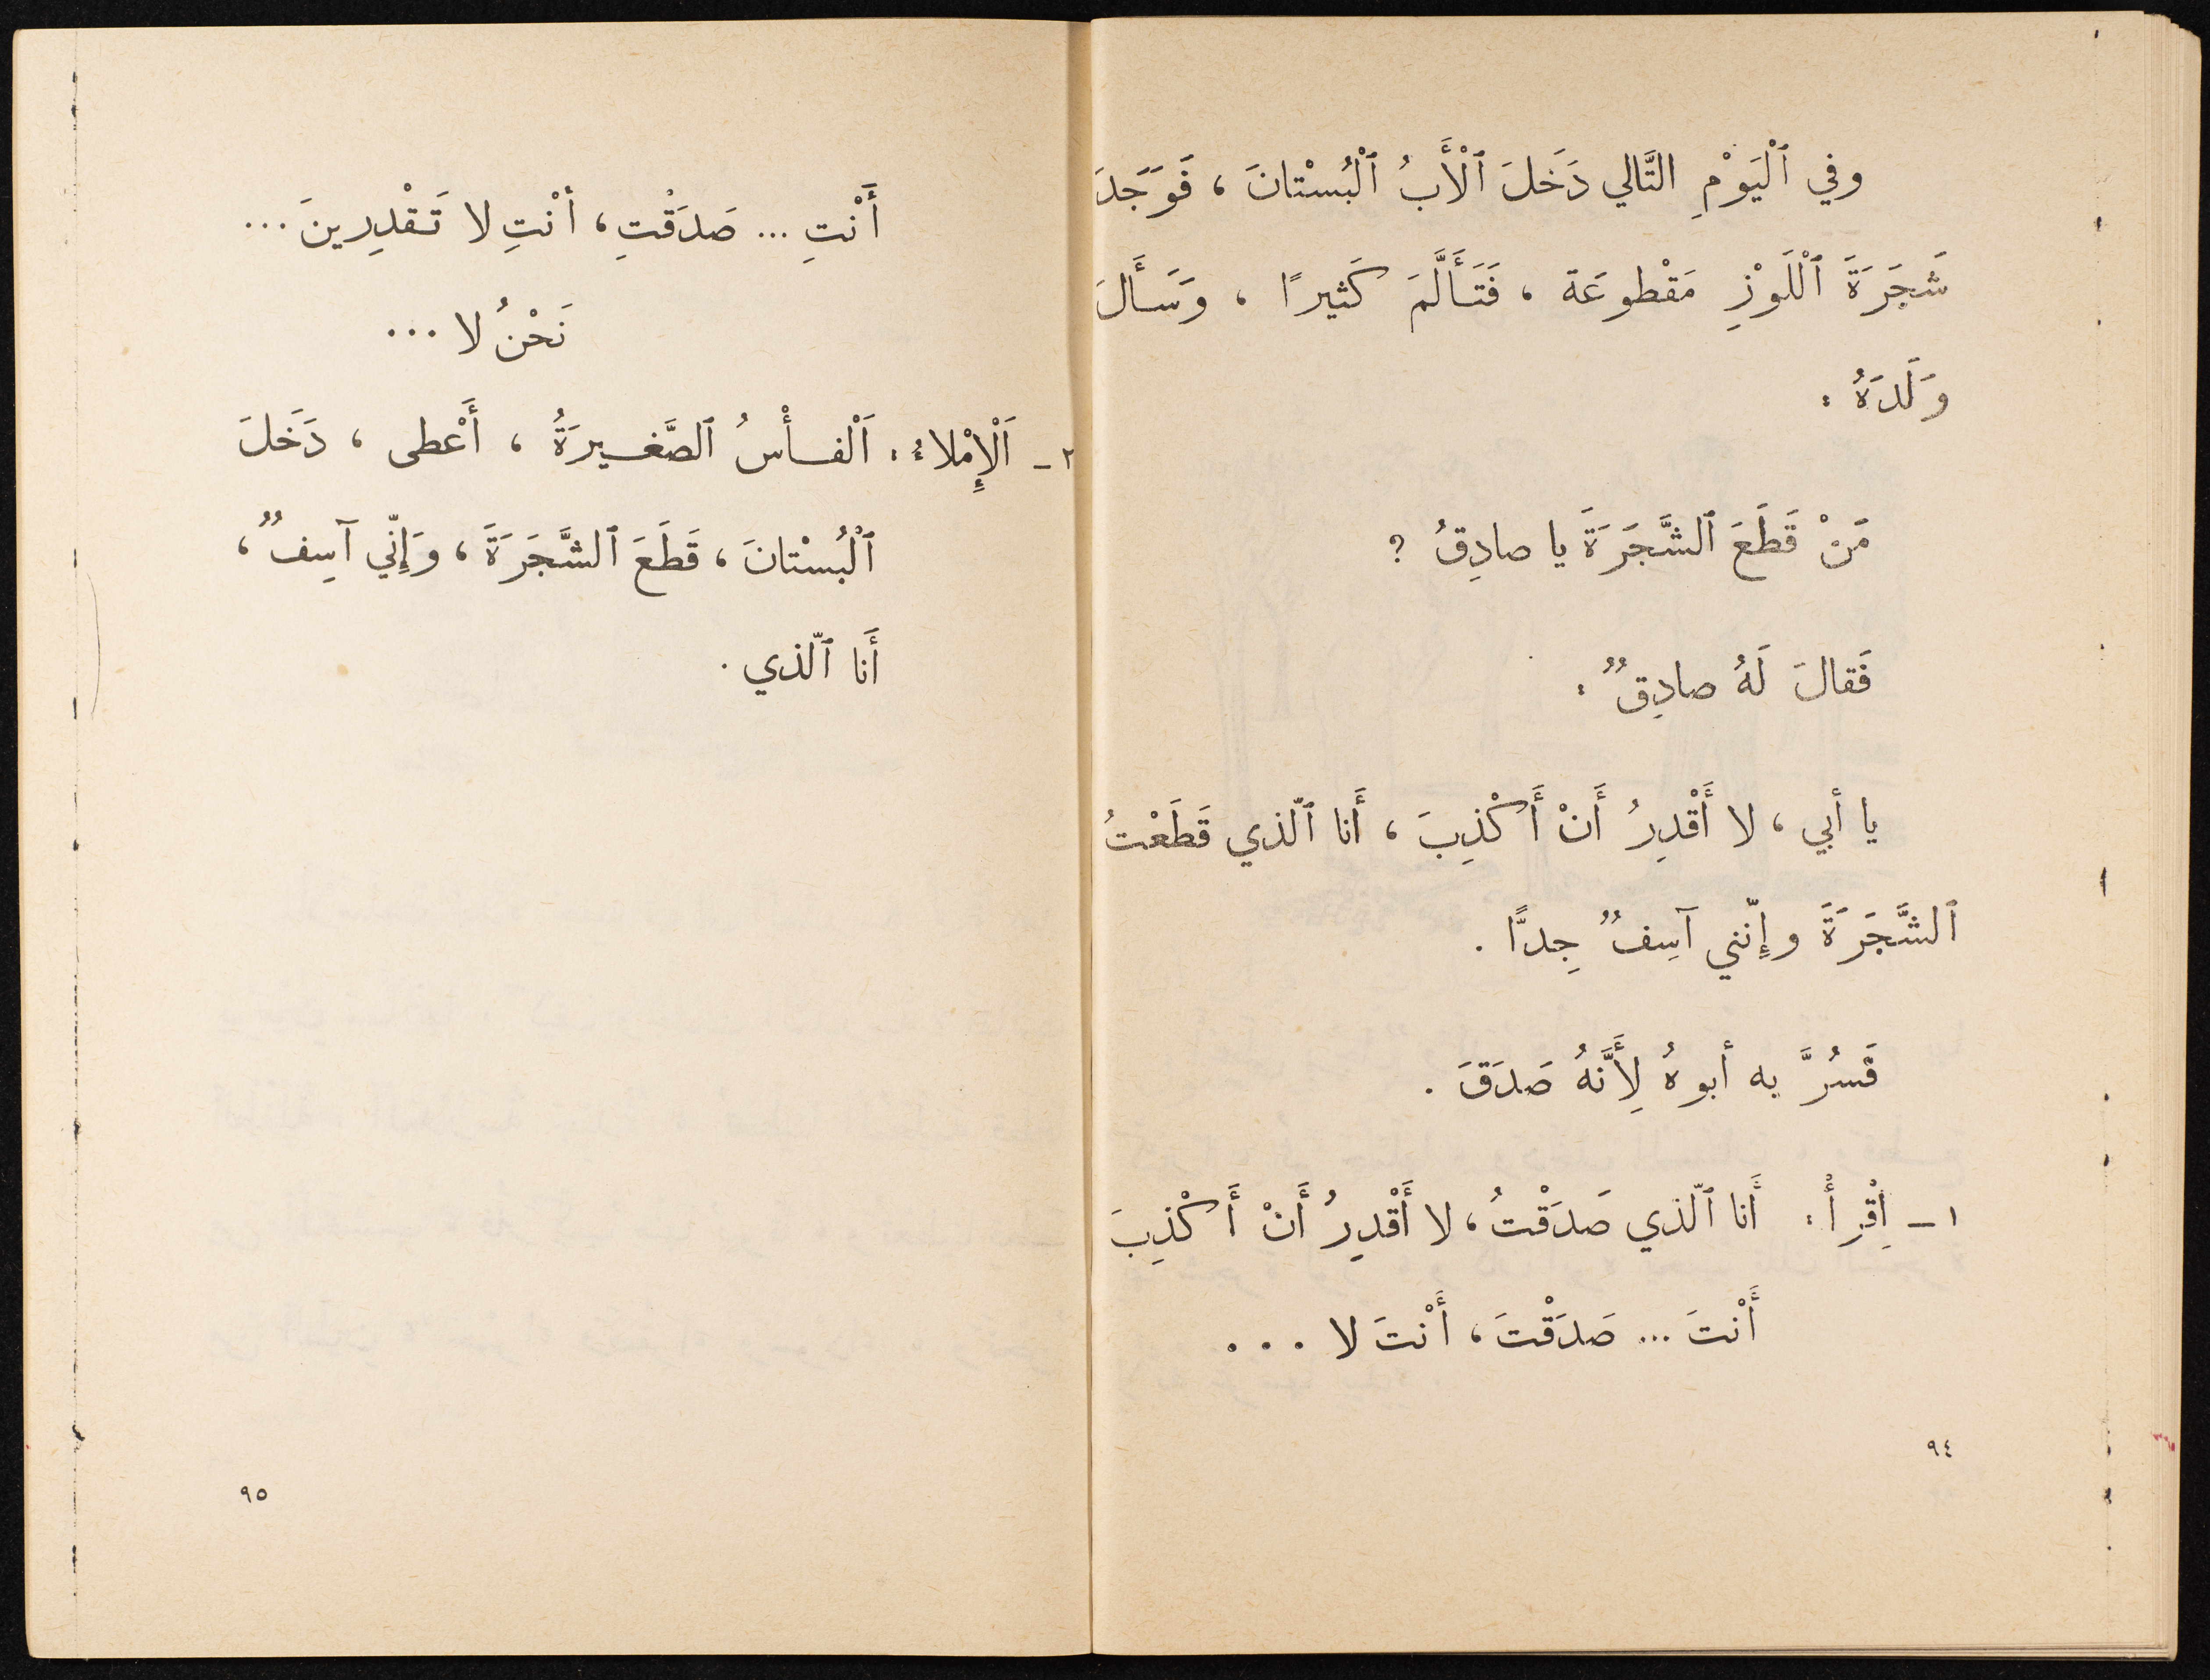 وفي ٱلْيَوْمِ التَّالي دَخَلَ ٱلْأَبُ ٱلْبُسْتانَ ، فَوَجَدَ
شَجَرَةَ ٱللَّوْزِ مَقْطوعَة ، فَتَأَلَّمَ كَثيرًا ، وَسَأَلَ
وَلَدَهُ :
مَنْ قَطَعَ ٱلشَّجَرَةَ يا صادِقُ ؟
فَقالَ لَهُ صادِقٌ :
يا أبي ، لا أَقْدِرُ أَنْ أَكْذِبَ ، أَنا ٱلّذي قَطَعْتُ
ٱلشَّجَرَةَ وإِنّني آسِفٌ جِدًّا .
فَسُرَّ به أبوهُ لِأَنَّهُ صَدَقَ .
١ - اِقْرِأْ : أَنا ٱلّذي صَدَقْتُ ، لا أَقْدِرُ أَنْ أَكْذِبَ
أَنْتَ ... صَدَقْتَ ، أَنْتَ لا ...
٩٤
أَنْتِ ... صَدَقْتِ ، أنْتِ لا تَقْدِرينَ ...
نَحْنُ لا ...
٢ - اَلْإِمْلاءُ : اَلْفأْسُ ٱلصَّغيرَةُ ، أَعْطى ، دَخَلَ
ٱلْبُسْتانَ ، قَطَعَ ٱلشَّجَرَةَ ، وَإِنّي آسِفٌ ،
أَنا ٱلّذي .
٩٥